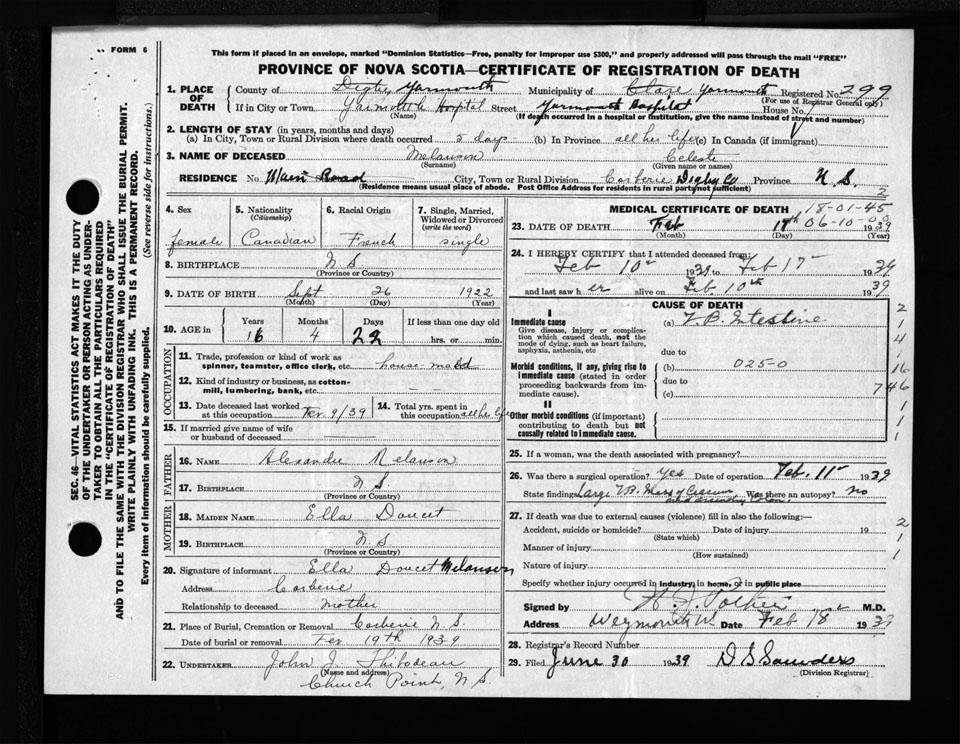 FORM 6
This form if placed in an envelope, marked "Dominion Statistics—Free, penalty for improper use $300," and properly addressed will pass through the mail "FREE"
PROVINCE OF NOVA SCOTIA—CERTIFICATE OF REGISTRATION OF DEATH
1. PLACE OF DEATH County of Digby Yarmouth Municipality of Clare Yarmouth Registered No. 299
(For use of Registrar General only)
If in City or Town Yarmouth Hospital Street Yarmouth Hospital House No.
(Name) (If death occurred in a hospital or institution, give the name instead of street and number)
2. LENGTH OF STAY (in years, months and days)
(a) In City, Town or Rural Division where death occurred 5 days (b) In Province all her life (c) In Canada (if immigrant)
3. NAME OF DECEASED Melanson Celeste
(Surname) (Given name or names)
RESIDENCE No. Main Road City, Town or Rural Division Corberie Digby Co Province N. S.
(Residence means usual place of abode. Post Office Address for residents in rural parts not sufficient)
4. Sex 5. Nationality (Citizenship) 6. Racial Origin 7. Single, Married, Widowed or Divorced (write the word)
female Canadian French single
8. BIRTHPLACE N S
(Province or Country)
9. DATE OF BIRTH Sept 26 1922
(Month) (Day) (Year)
10. AGE in Years Months Days If less than one day old
16 4 22 hrs. or min.
OCCUPATION
11. Trade, profession or kind of work as spinner, teamster, office clerk, etc. house maid
12. Kind of industry or business, as cotton-mill, lumbering, bank, etc.
13. Date deceased last worked at this occupation Fev. 9/39 14. Total yrs. spent in this occupation all her life
15. If married give name of wife or husband of deceased
FATHER
16. NAME Alexandre Melanson
17. BIRTHPLACE N S
(Province or Country)
MOTHER
18. MAIDEN NAME Ella Doucet
19. BIRTHPLACE N S
(Province or Country)
20. Signature of informant Ella Doucet Melanson
Address Corberie
Relationship to deceased mother
21. Place of Burial, Cremation or Removal Corberie N. S.
Date of burial or removal Fev 19th 1939
22. UNDERTAKER John J. Thibodeau
(Name and address)
Church Point, N. S.
MEDICAL CERTIFICATE OF DEATH 18-01-45
23. DATE OF DEATH Feb 17th 06-10-00 1939
(Month) (Day) (Year)
24. I HEREBY CERTIFY that I attended deceased from:
Feb 10th 1939 to Feb 17th 1939
and last saw her alive on Feb. 10th 1939
CAUSE OF DEATH
I
Immediate cause (a) T. B. Intestine
Give disease, injury or complication which caused death, not the mode of dying, such as heart failure, asphyxia, asthenia, etc
due to
Morbid conditions, if any, giving rise to immediate cause (stated in order proceeding backwards from immediate cause).
(b) 0250
due to 746
(c)
II
Other morbid conditions (if important) contributing to death but not causally related to immediate cause.
25. If a woman, was the death associated with pregnancy?
26. Was there a surgical operation? yes Date of operation Feb. 11th 1939
State findings Large T. B. Mass of Cecum and ascending Colon Was there an autopsy? no
27. If death was due to external causes (violence) fill in also the following:—
Accident, suicide or homicide? Date of injury 19
(State which)
Manner of injury
(How sustained)
Nature of injury
Specify whether injury occurred in industry, in home, or in public place
Signed by M.D.
Address Weymouth W. Date Feb 18th 1939
28. Registrar's Record Number
29. Filed June 30 1939 D S Saunders
(Division Registrar)
SEC. 46—VITAL STATISTICS ACT MAKES IT THE DUTY
OF THE UNDERTAKER OR PERSON ACTING AS UNDER-
TAKER TO OBTAIN ALL THE PARTICULARS REQUIRED
IN THE "CERTIFICATE OF REGISTRATION OF DEATH"
AND TO FILE THE SAME WITH THE DIVISION REGISTRAR WHO SHALL ISSUE THE BURIAL PERMIT.
WRITE PLAINLY WITH UNFADING INK. THIS IS A PERMANENT RECORD.
Every item of information should be carefully supplied. (See reverse side for instructions.)